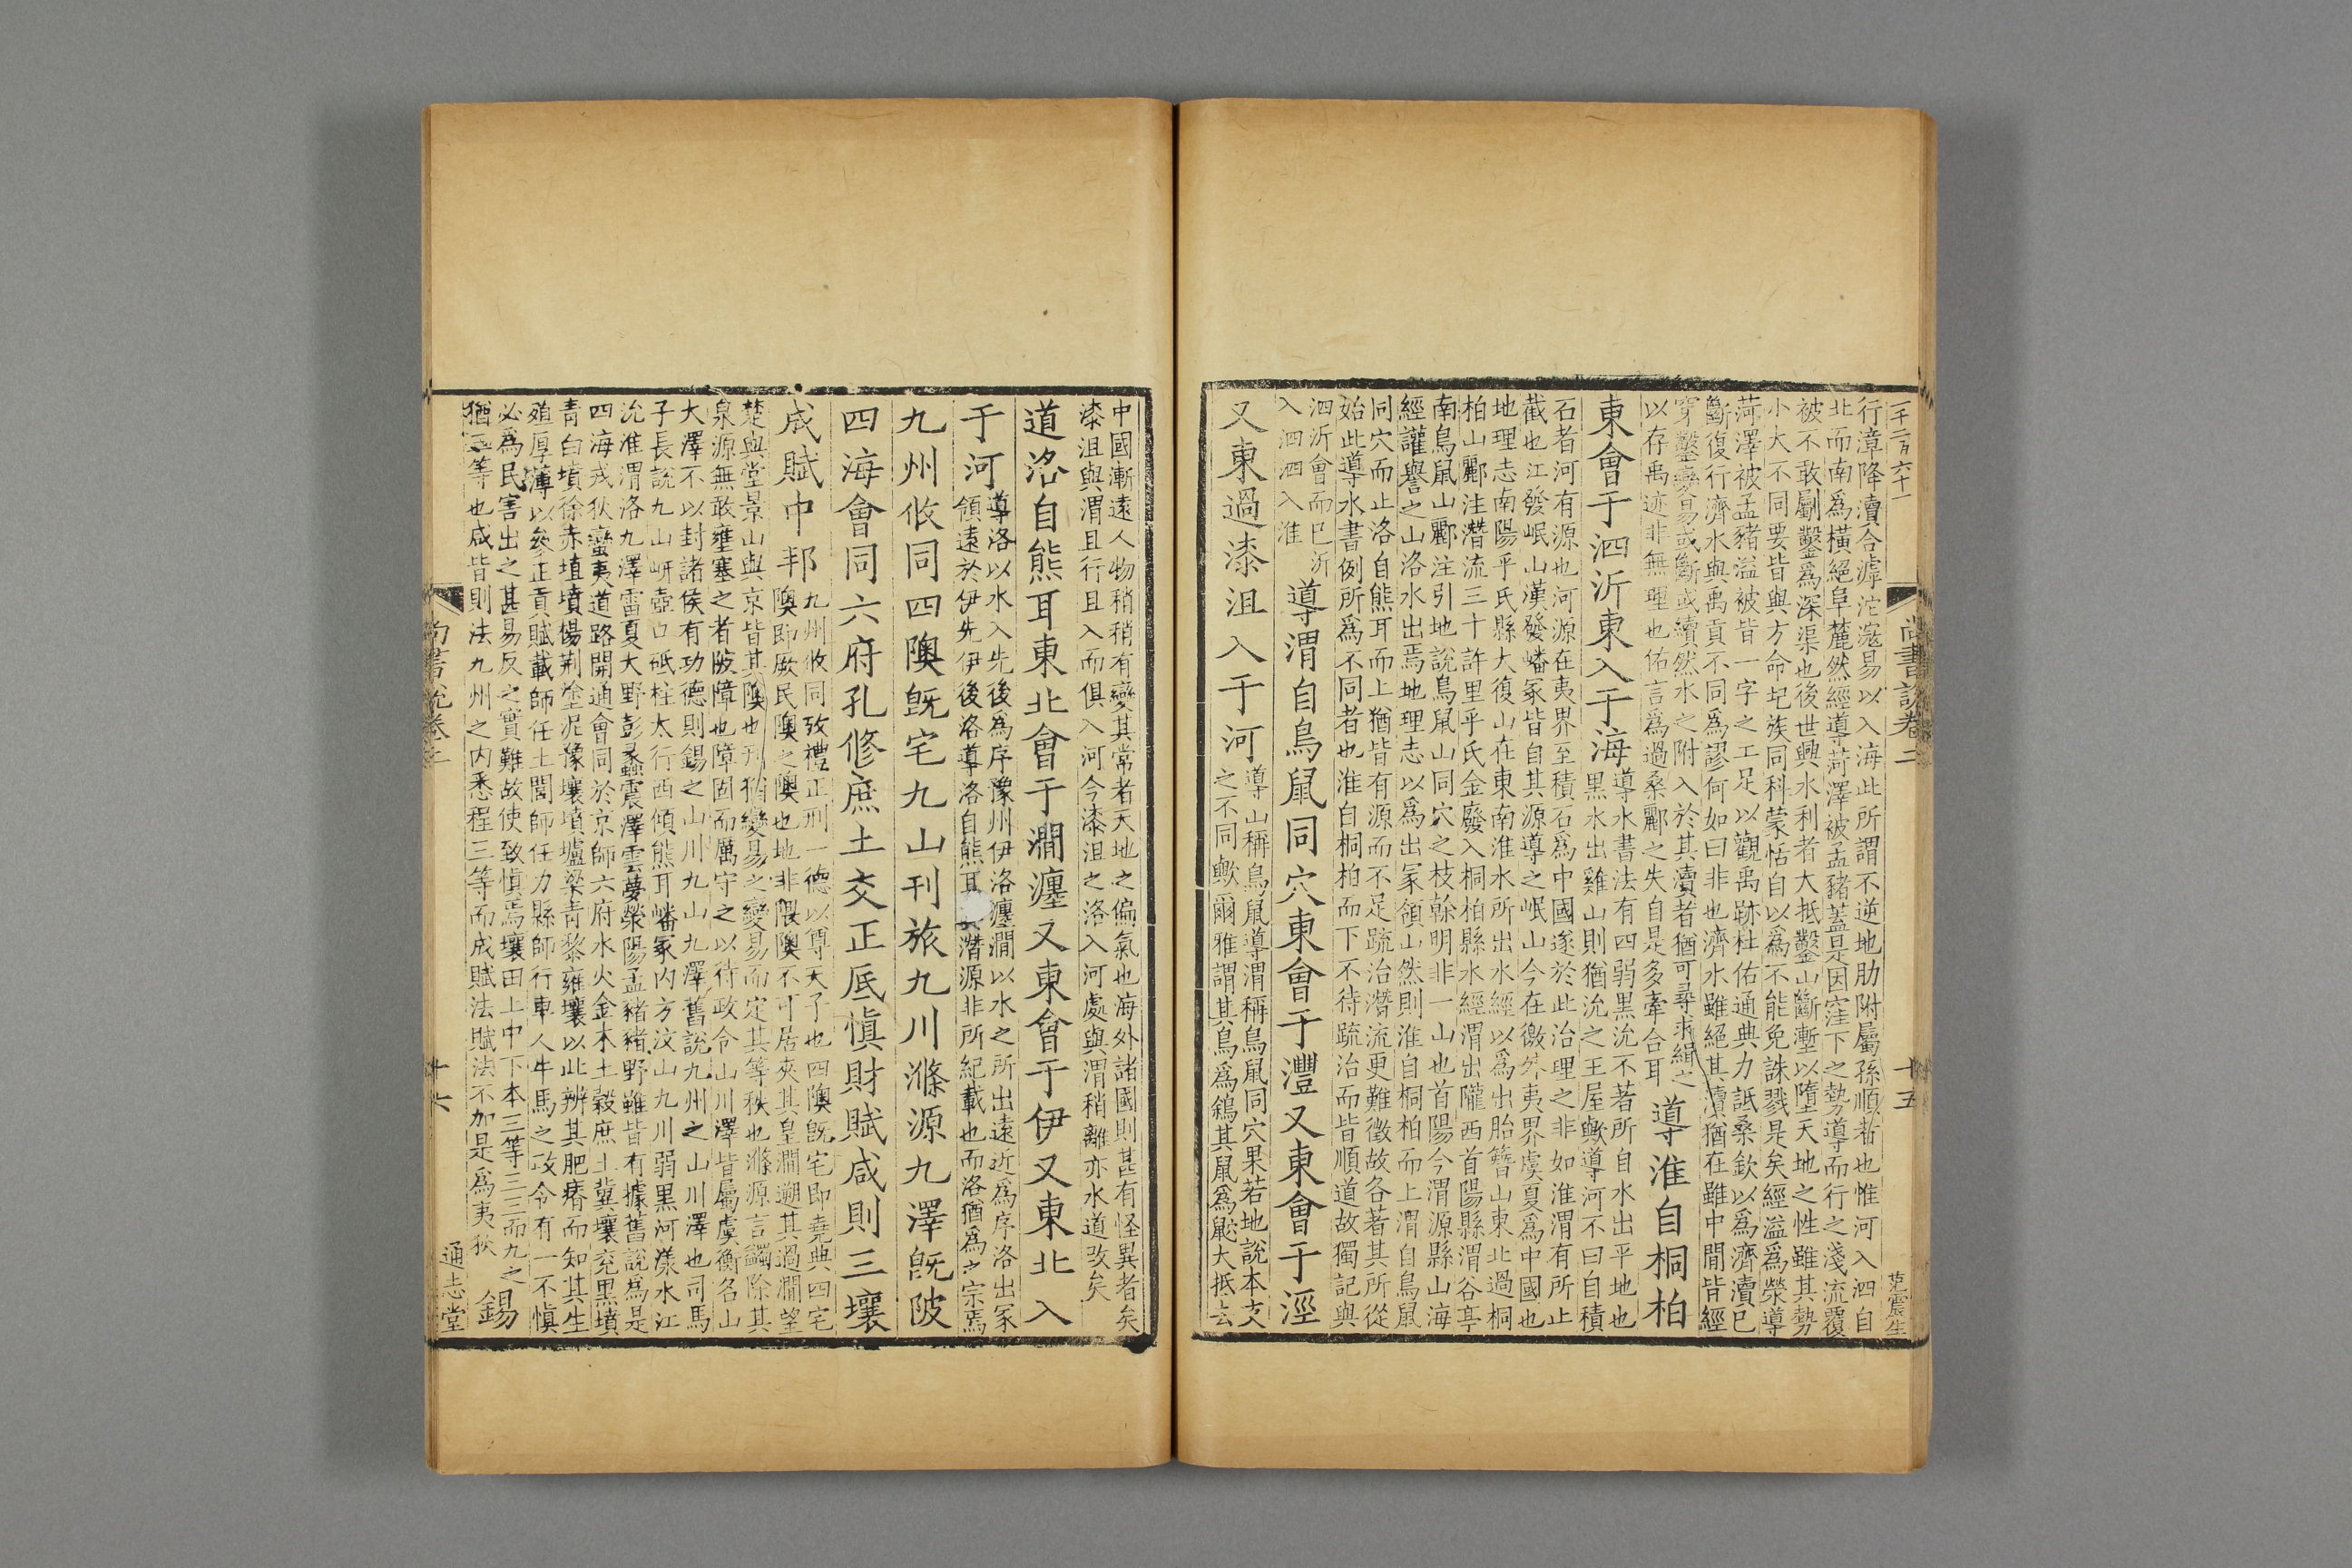 一千二百六十一
尚書說卷二
十五
范震生
行漳降瀆合滹沱寇易以入海此所謂不逆地肋附屬孫順者也惟河入泗自
北而南爲橫絕阜麓然經導菏澤被孟豬蓋是因窪下之勢導而行之淺流覆
被不敢劚鑿爲深渠也後世興水利者大抵鑿山斷塹以隳天地之性雖其勢
小大不同要皆與方命圮族同科蒙恬自以爲不能免誅戮是矣經溢爲滎導
菏澤被孟豬溢被皆一字之工足以觀禹跡杜佑通典力詆桑欽以爲濟瀆已
斷復行濟水與禹貢不同爲謬何如曰非也濟水雖絕其瀆猶在雖中閒皆經
穿鑿變易或斷或續然水之附入於其瀆者猶可尋求緝之
以存禹迹非無理也佑言爲過桑酈之失自是多牽合耳
導淮自桐柏
東會于泗沂東入于海
導水書法有四弱黑沇不著所自水出平地也
黑水出雞山則猶沇之王屋歟導河不曰自積
石者河有源也河源在夷界至積石爲中國遂於此治理之非如淮渭有所止
截也江發岷山漢發嶓冢皆自其源導之岷山今在徼外夷界虞夏爲中國也
地理志南陽平氏縣大復山在東南淮水所出水經以爲出胎簪山東北過桐
柏山酈注潛流三十許里平氏金廢入桐柏縣水經渭出隴西首陽縣渭谷亭
南鳥鼠山酈注引地說鳥鼠山同穴之枝榦明非一山也首陽今渭源縣山海
經讙譽之山洛水出焉地理志以爲出冢領山然則淮自桐柏而上渭自鳥鼠
同穴而止洛自熊耳而上猶皆有源而不足疏治潛流更難徵故各著其所從
始此導水書例所爲不同者也淮自桐柏而下不待疏治而皆順道故獨記與
泗沂會而已沂
入泗泗入淮
導渭自鳥鼠同穴東會于灃又東會于涇
又東過漆沮入于河
導山稱鳥鼠導渭稱鳥鼠同穴果若地說本支
之不同歟爾雅謂其鳥爲鵌其鼠爲鼵大抵去
中國漸遠人物稍稍有變其常者天地之偏氣也海外諸國則甚有怪異者矣
漆沮與渭且行且入而俱入河今漆沮之洛入河處與渭稍離亦水道改矣
道洛自熊耳東北會于澗瀍又東會于伊又東北入
于河
導洛以水入先後爲序豫州伊洛瀍澗以水之所出遠近爲序洛出冢
領遠於伊先伊後洛導洛自熊耳其潛源非所紀載也而洛猶爲之宗焉
九州攸同四隩旣宅九山刊旅九川滌源九澤旣陂
四海會同六府孔修庶土交正厎愼財賦咸則三壤
成賦中邦
九州攸同攷禮正刑一德以尊天子也四隩旣宅即堯典四宅
隩即厥民隩之隩也地非隈隩不可居夾其皇澗遡其過澗望
楚與堂景山與京皆其隩也刊猶變易之變易而定其等秩也滌源言蠲除其
泉源無敢壅塞之者陂障也障固而厲守之以待政令山川澤皆屬虞衡名山
大澤不以封諸侯有功德則錫之山川九山九澤舊說九州之山川澤也司馬
子長說九山岍壺口砥柱太行西傾熊耳嶓冢內方汶山九川弱黑河漾水江
沇淮渭洛九澤雷夏大野彭蠡震澤雲夢滎陽孟豬豬野雖皆有據舊說爲是
四海戎狄蠻夷道路開通會同於京師六府水火金木土穀庶土冀壤兖黑墳
青白墳徐赤埴墳楊荆塗泥豫壤墳壚梁青黎雍壤以此辨其肥瘠而知其生
殖厚薄以參正貢賦載師任土閭師任力縣師行車人牛馬之政令有一不愼
必爲民害出之甚易反之實難故使致愼焉壤田上中下本三等三三而九之
猶三等也咸皆則法九州之內悉程三等而成賦法賦法不加是爲夷狄
錫
尚書說卷二
十六
通志堂